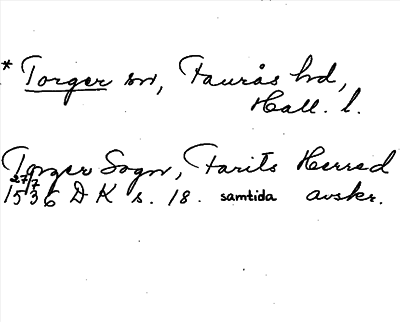 * Torger sn, Faurås hd,
Hall. l.
Torger Sogn, Farits Herred
27/7
1536 D K s. 18. samtida avskr.